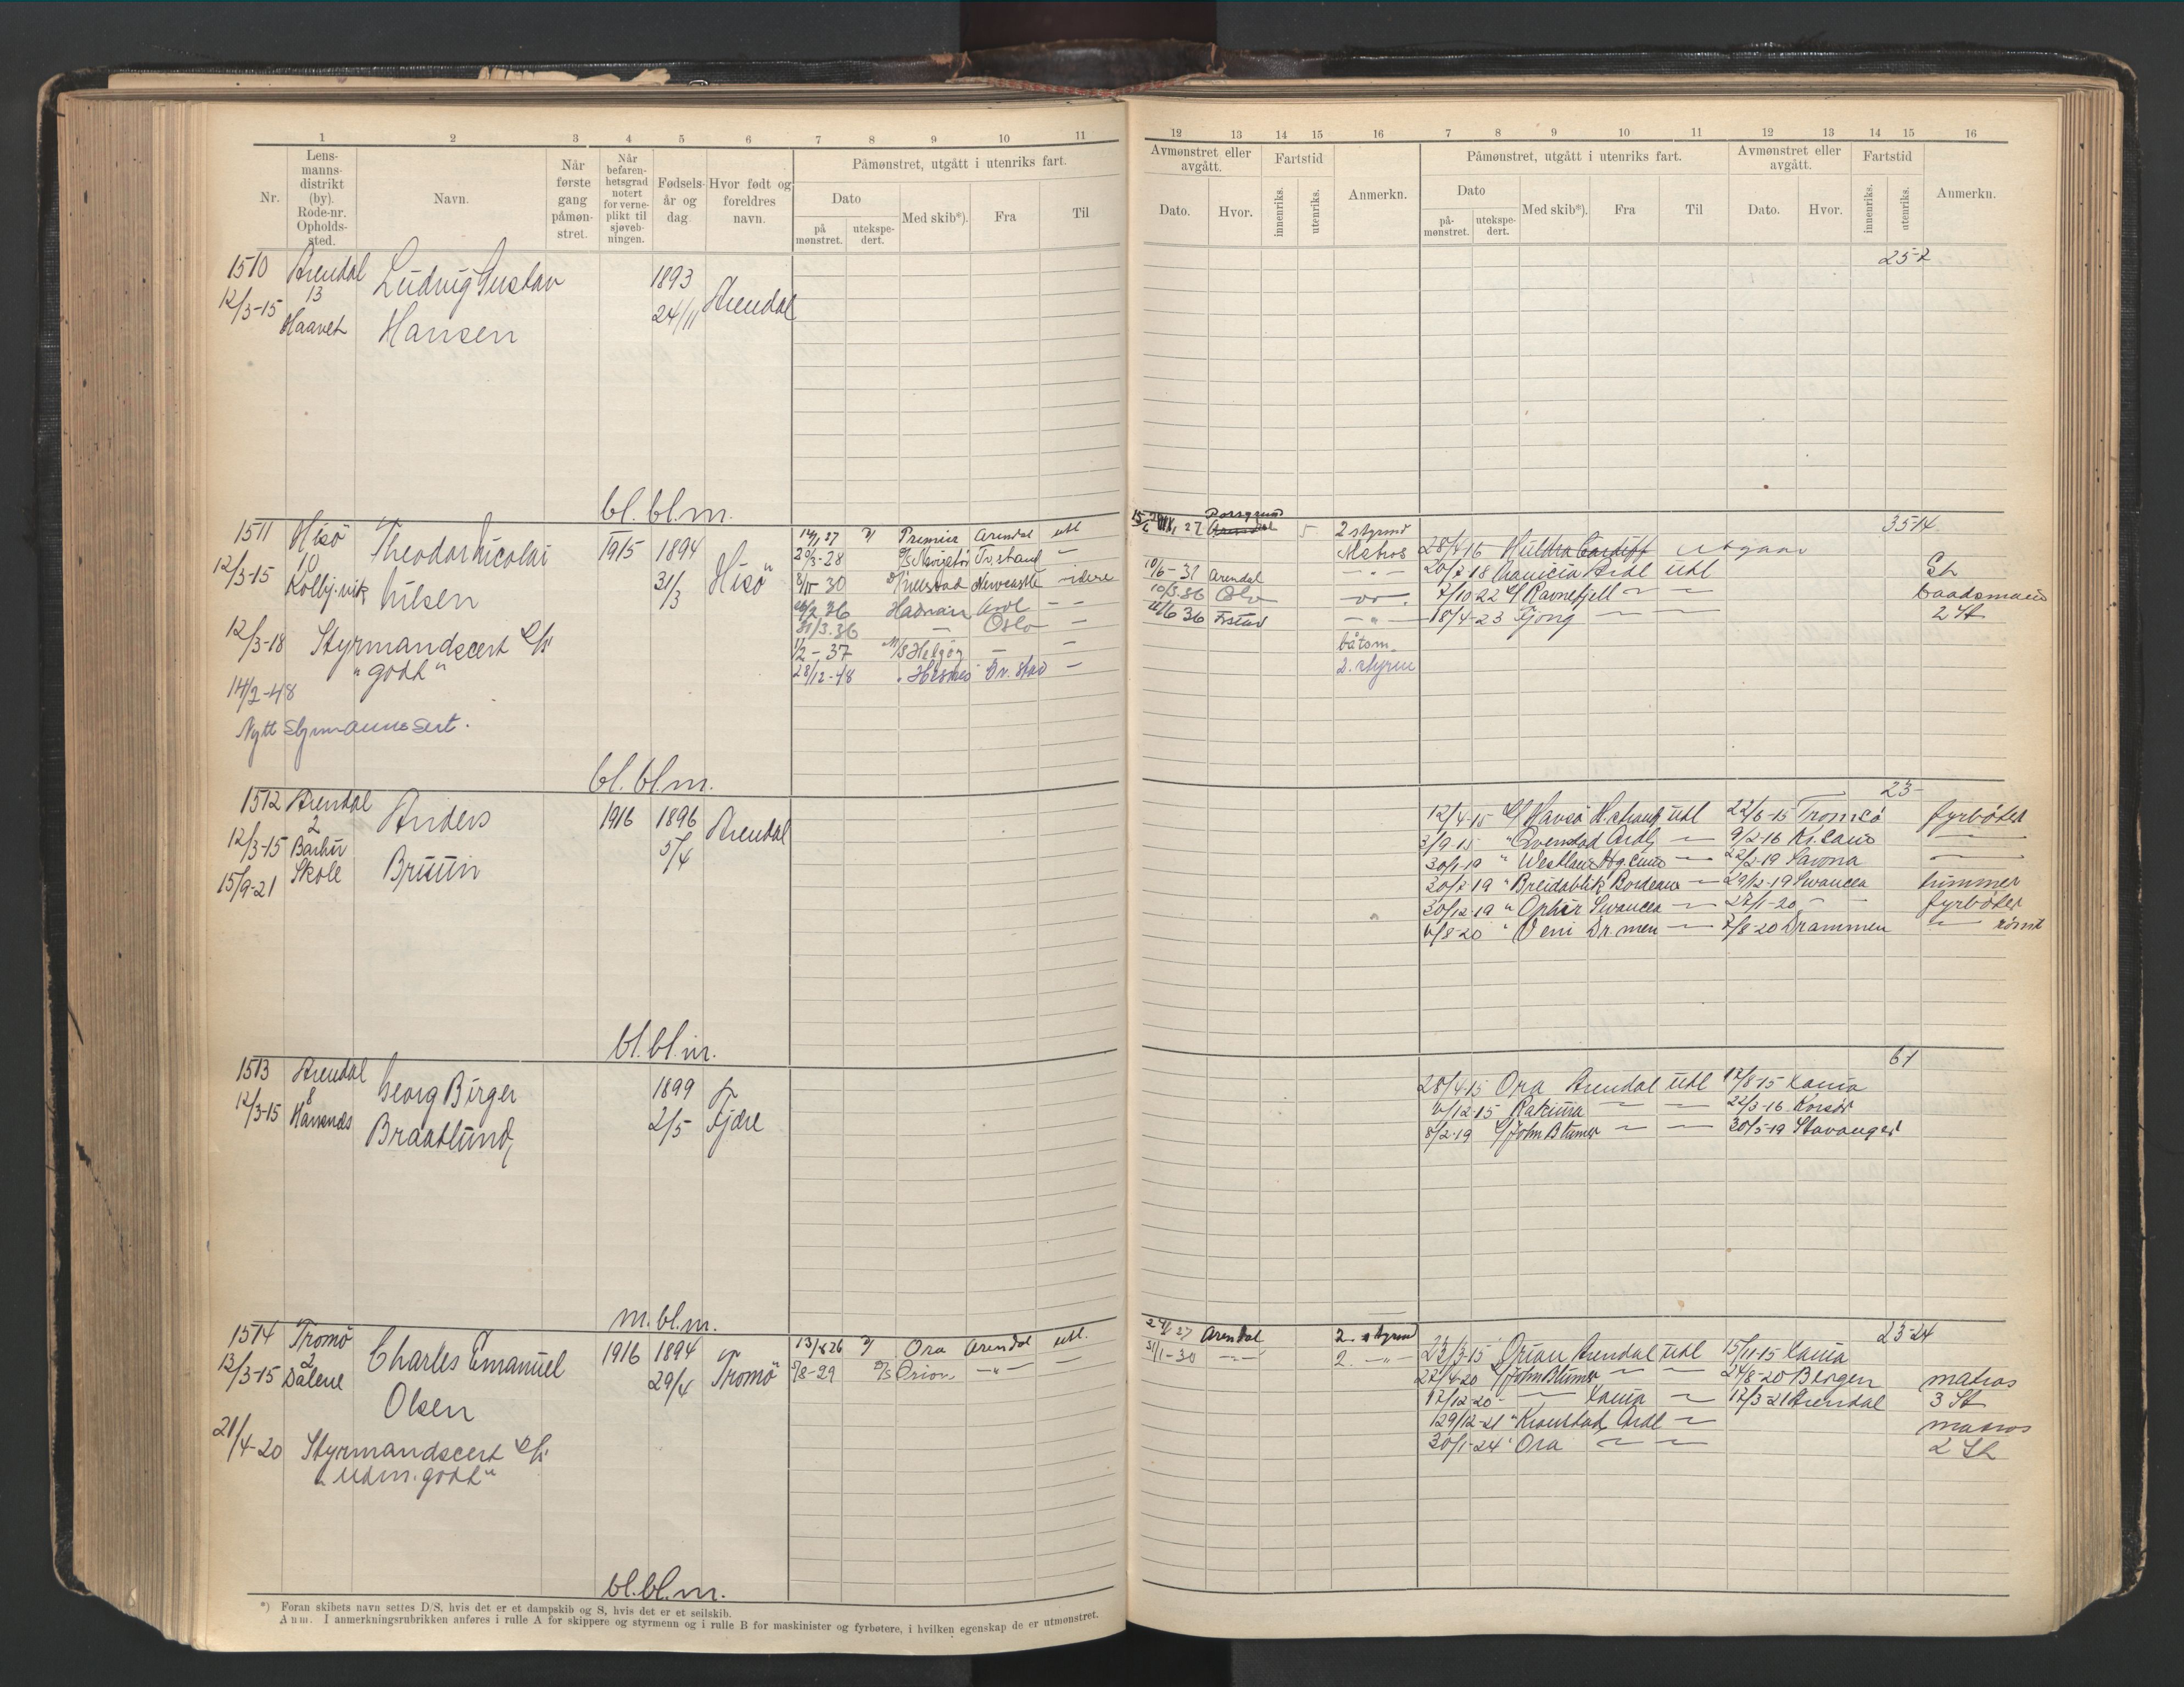 1 2 3 4 5 6 7 8 9 10 11
Nr.
Lens-
manns-
distrikt
(by).
Rode-nr.
Opholds-
sted.
Navn.
Når
første
gang
påmøn-
stret.
Når
befaren-
hetsgrad
notert
for verne-
plikt til
sjøveb-
ningen.
Fødsels-
år og
dag.
Hvor født og
foreldres
navn.
Påmønstret, utgått i utenriks fart.
Dato
på
mønstret.
utekspe-
dert.
Med skib*).
Fra
Til
1510 Arendal Ludvig Gustav 1893
12/3-15 13 Arendal
Haavet Hansen 24/11
bl. bl. m.
1511 Hisö Theodor Nicolai 1915 1894 Hisö
12/3-15 1 31/3
Kolbj.vik Nilsen
12/3-18 Styrmandscert
"godt"
14/2-48
Nytt Styrmannssert.
Premier Arendal utl
20/3-28 Navigatör Tv.strand —
8/11-30 Newcastle — videre
Ardl — —
31/3.36 — Oslo —
1/2-37 M/S Helgöy — —
28/12-48 Tv. strand —
bl. bl. m.
1512 Arendal Anders 1916 1896 Arendal
12/3-15 2 5/4
Barbu Bruun
15/9-21 Skole
bl. bl. m.
1513 Arendal Georg Birger 1899 Fjære
12/3-15 8 2/5
Braatlund,
m. bl. m.
1514 Tromö Charles Emanuel 1916 1894 Tromö
13/3-15 2 29/4
Dalene Olsen
21/4-20 Styrmandscert
"udm. godt"
Ora Arendal utl.
5/8-29 D/S Orion —"— —
bl. bl. m.
*) Foran skibets navn settes D/S, hvis det er et dampskib og S, hvis det er et seilskib.
Anm. I anmerkningsrubrikken anføres i rulle A for skippere og styrmenn og i rulle B for maskinister og fyrbøtere, i hvilken egenskap de er utmønstret.
12 13 14 15 16 7 8 9 10 11 12 13 14 15 16
Avmønstret eller
avgått.
Dato.
Hvor.
Fartstid
innenriks.
utenriks.
Anmerkn.
Påmønstret, utgått i utenriks fart.
Dato
på-
mønstret.
utekspe-
dert.
Med skib*).
Fra
Til
Avmønstret eller
avgått.
Dato.
Hvor.
Fartstid
innenriks.
utenriks.
Anmerkn.
25-2
35-14
Porsgrund
27 Arendal 5 2 styrmd
Matros 28/4-16 Huldra Cardiff utgaar
10/6-31 Arendal —"— 20/7 18 Ardl utl St
10/3.36 Oslo 7/10 22 Ravnefjell — — baadsmand
36 —"— 18/4-23 Fjong — — 2 St
båtsm.
2. styrm
23-
12/4-15 Havsö utl 22/6-15 Tromsö fyrböter
3/9-15 " Arendal — 9/2-16 —
30/1-19 " — 22/2-19 Savona —
20/7-19 " Breidablik Bordeaux — 29/12-19 Swansea trimmer
30/12-19 " Ophir Swansea — 27/1-20 — — fyrböter
6/8-20 " Veni Dr.men — 7/8-20 Drammen — römt
61
28/4-15 Ora Arendal utl 17/8-15
6/12-15 — — 22/3-16 Korsör
8/2-19 John Blumer — — 30/5-19 Stavanger
23-24
27 Arendal 2. styrmd 23/3-15 Orian Arendal utl 15/11-15
31/1-30 —"— 2. —"— 27/4-20 John Blumer — — 24/8-20 Bergen matros
17/12-20 — — 17/3-21 Arendal 3 St
29/12-21 " Ardl — matros
30/1-24 " Ora — — 2 St